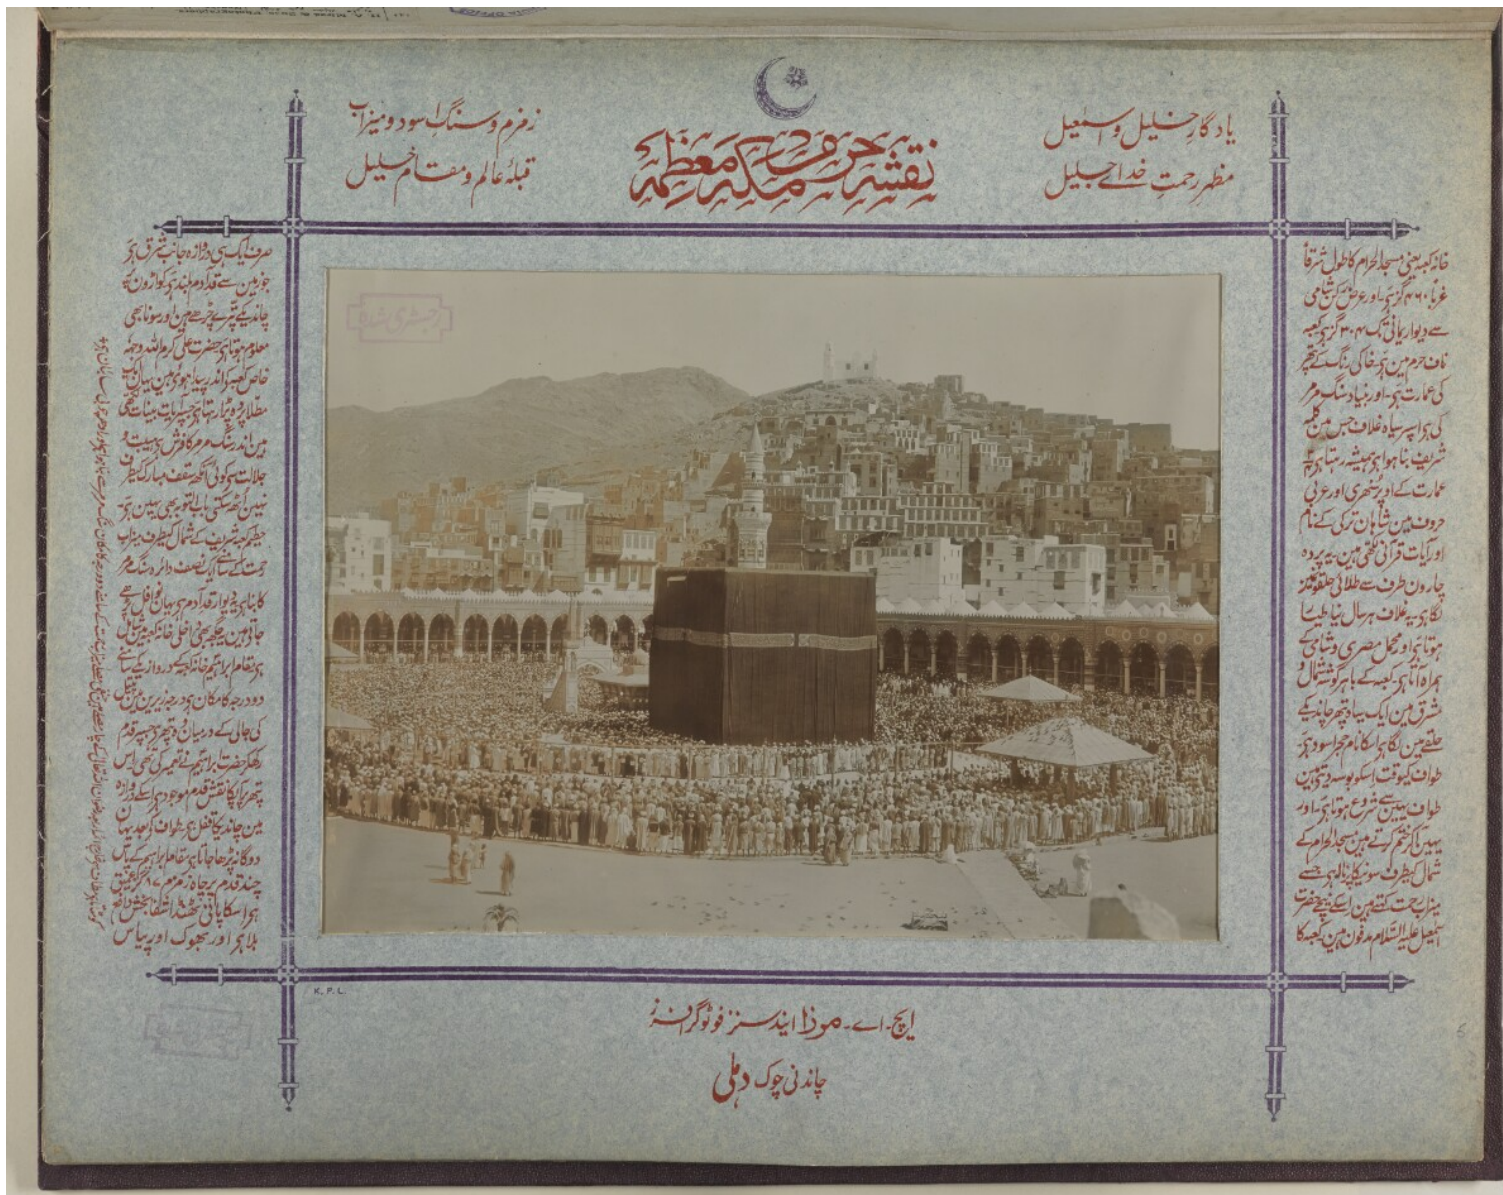 یادگارِ خلیل و اسمٰعیل
مظہر رحمتِ خدائے جلیل
نقشہ حرم مکہ معظمہ
زمزم و سنگ اسود و میزاب
قبلۂ عالم و مقام خلیل
رجسٹری شدہ
خانہ کعبہ یعنی مسجد الحرام کا طول شرقاً
غرباً ۴۶۰ گز ہی۔ اور عرض رکن شامی
سے دیوار یمانی تک ۳۰۴ گز ہی کعبہ
ناف حرم مین ہی خاکی رنگ کے پتھر
کی عمارت ہی۔ اور بنیاد سنگ مرمر
کی ہی اسپر سیاہ غلاف جس مین کلمہ
شریف بنا ہوا ہی ہمیشہ رہتا ہی
عمارت کے اوپر سنہری اور عربی
حروف مین شاہان ترکی کے نام
اور آیات قرآنی لکھی ہین۔ یہ پردہ
چارون طرف سے طلائی حلقونمین
لگا ہی یہ غلاف ہر سال نیا طیار
ہوتا ہی اور محمل مصری و شامی کے
ہمراہ آتا ہی۔ کعبہ کے باہر گوشہ شمال و
مشرق مین ایک سیاہ پتھر چاندیکے
حلقے مین لگا ہی اسکا نام حجر اسود ہی۔
طواف کیوقت اسکو بوسہ دیتے ہین
طواف یہین سے شروع ہوتا ہی۔ اور
یہین آکر ختم کرتے ہین مسجد الحرام کے
شمال کیطرف سونیکا پرنالہ ہی جسے
میزاب رحمت کہتے ہین اسکے نیچے حضرت
اسمٰعیل علیہ السّلام مدفون ہین۔ کعبہ کا
صرف ایک ہی دروازہ جانب شرق ہی
جو زمین سے قد آدم بلند ہی کواڑون پر
چاندیکے پترے چڑھے ہین اور سونا بھی
معلوم ہوتا ہی حضرت علی کرم اللہ وجہہ
خاص کعبہ کے اندر پیدا ہوئے ہین یہان
مطلا پردہ پڑا رہتا ہی جسپر آیات بینات لکھی
ہین اندر سنگ مرمر کا فرش ہی ہیبت و
جلالت سے کوئی آنکھ سقف مبارک کیطرف
نہین اُٹھ سکتی باب التوبہ بھی یہین ہی
حطیم کعبہ شریف کے شمال کیطرف میزاب
رحمت کے نیچے ایک نصف دائرہ سنگ مرمر
کا بنا ہی یہ دیوار قد آدم ہی یہان نوافل پڑھے
جاتے ہین یہ جگہ بھی داخل خانہ کعبہ
ہی مقام ابراہیم خانہ کعبہ کے دروازیکے سامنے
دو درجہ کا مکان ہی درجہ زیرین مین پیتل
کی جالی کے درمیان وہ پتھر ہی جسپر قدم
رکھکر حضرت ابراہیم نے تعمیر کی تھی اس
پتھر پر آپکا نقش قدم موجود ہی اسکے دروازہ
مین چاندیکا قفل ہی طواف کے بعد یہان
دوگانہ پڑھا جاتا ہی مقام ابراہیم کے پاس
چند قدم پر چاہ زمزم ۶۷ گز عمیق
ہی اسکا پانی ٹھنڈا شفا بخش دافع
بلا ہی اور بھوک اور پیاس
K. P. L.
ایچ۔ اے۔ مرزا اینڈ سنز فوٹوگرافرز
چاندنی چوک دہلی